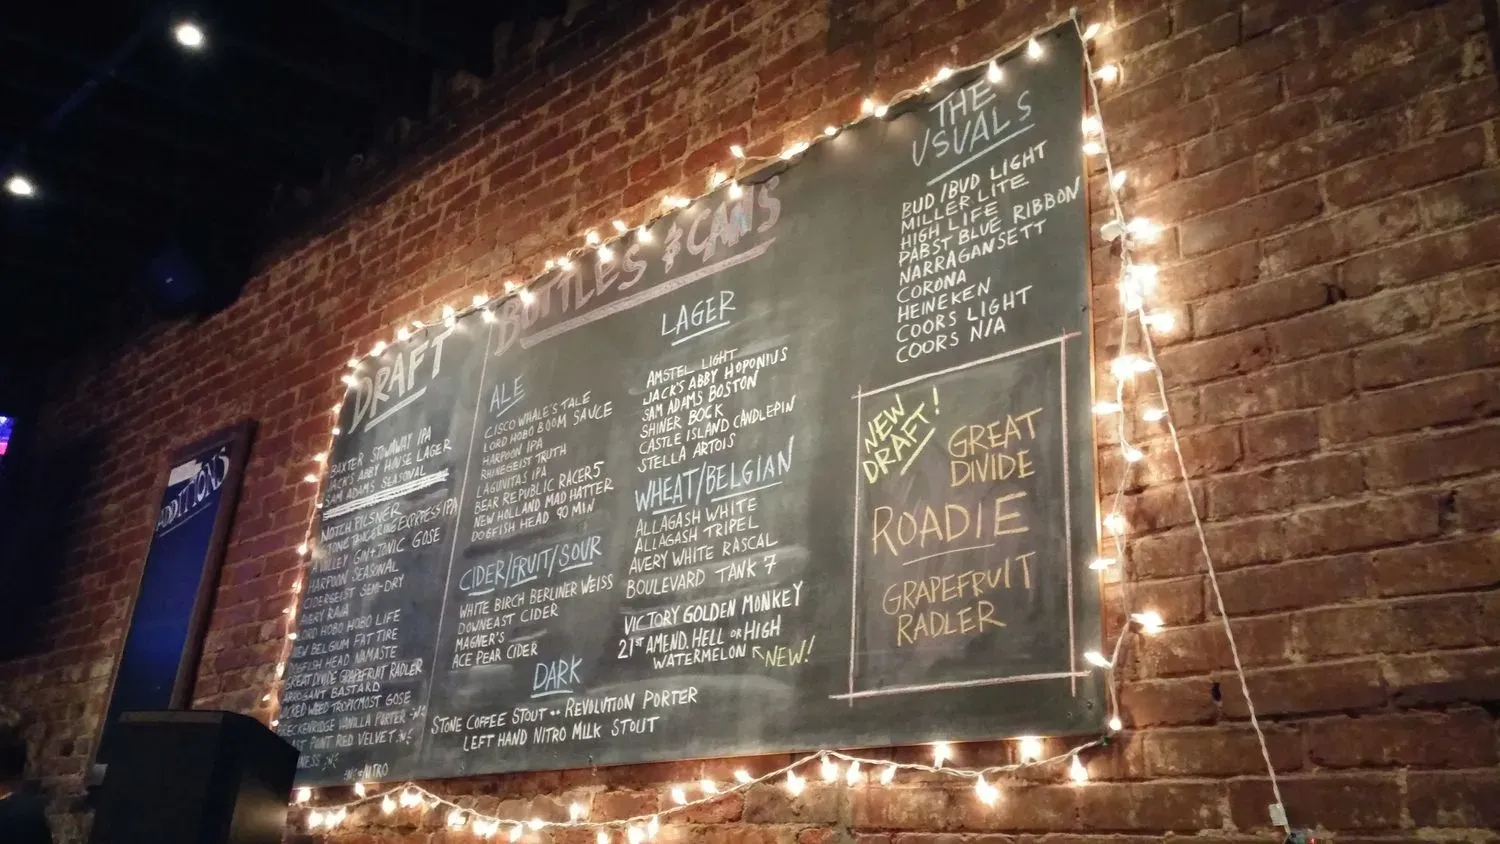 ADDITIONS
DRAFT
BAXTER STOWAWAY IPA
JACK'S ABBY HOUSE LAGER
SAM ADAMS SEASONAL
NOTCH PILSNER
STONE TANGERINE EXPRESS IPA
VALLEY GIN + TONIC GOSE
HARPOON SEASONAL
CIDERGEIST SEMI-DRY
AVERY RAJA
LORD HOBO HOBO LIFE
NEW BELGIUM FAT TIRE
DOGFISH HEAD NAMASTE
GREAT DIVIDE GRAPEFRUIT RADLER
ARROGANT BASTARD
WEED TROPICMOST GOSE
BRECKENRIDGE VANILLA PORTER
EAST POINT RED VELVET
=NITRO
BOTTLES & CANS
ALE
CISCO WHALE'S TALE
LORD HOBO BOOM SAUCE
HARPOON IPA
RHINEGEIST TRUTH
LAGUNITAS IPA
BEAR REPUBLIC RACER 5
NEW HOLLAND MAD HATTER
DOGFISH HEAD 90 MIN
CIDER/FRUIT/SOUR
WHITE BIRCH BERLINER WEISS
DOWNEAST CIDER
MAGNER'S
ACE PEAR CIDER
DARK
STONE COFFEE STOUT -- REVOLUTION PORTER
LEFT HAND NITRO MILK STOUT
LAGER
AMSTEL LIGHT
JACK'S ABBY HOPONIUS
SAM ADAMS BOSTON
SHINER BOCK
CASTLE ISLAND CANDLEPIN
STELLA ARTOIS
WHEAT/BELGIAN
ALLAGASH WHITE
ALLAGASH TRIPEL
AVERY WHITE RASCAL
BOULEVARD TANK 7
VICTORY GOLDEN MONKEY
21ST AMEND. HELL OR HIGH
WATERMELON NEW!
THE
USUALS
BUD/BUD LIGHT
MILLER LITE
HIGH LIFE
PABST BLUE RIBBON
NARRAGANSETT
CORONA
HEINEKEN
COORS LIGHT
COORS N/A
NEW
DRAFT!
GREAT
DIVIDE
ROADIE
GRAPEFRUIT
RADLER